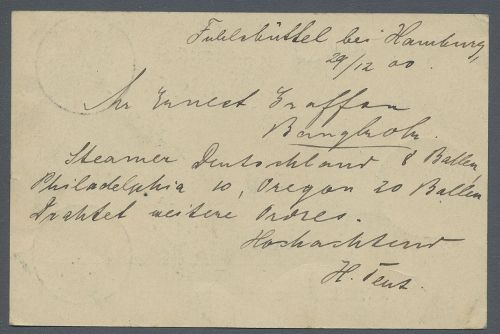 Fuhlsbüttel bei Hamburg,
29/12 00.
Mr Ernest Graffon
Bangkok.
Steamer Deutschland 8 Ballen,
Philadelphia 10, Oregon 20 Ballen
Drahtet weitere Ordres.
Hochachtend
H. Tent.